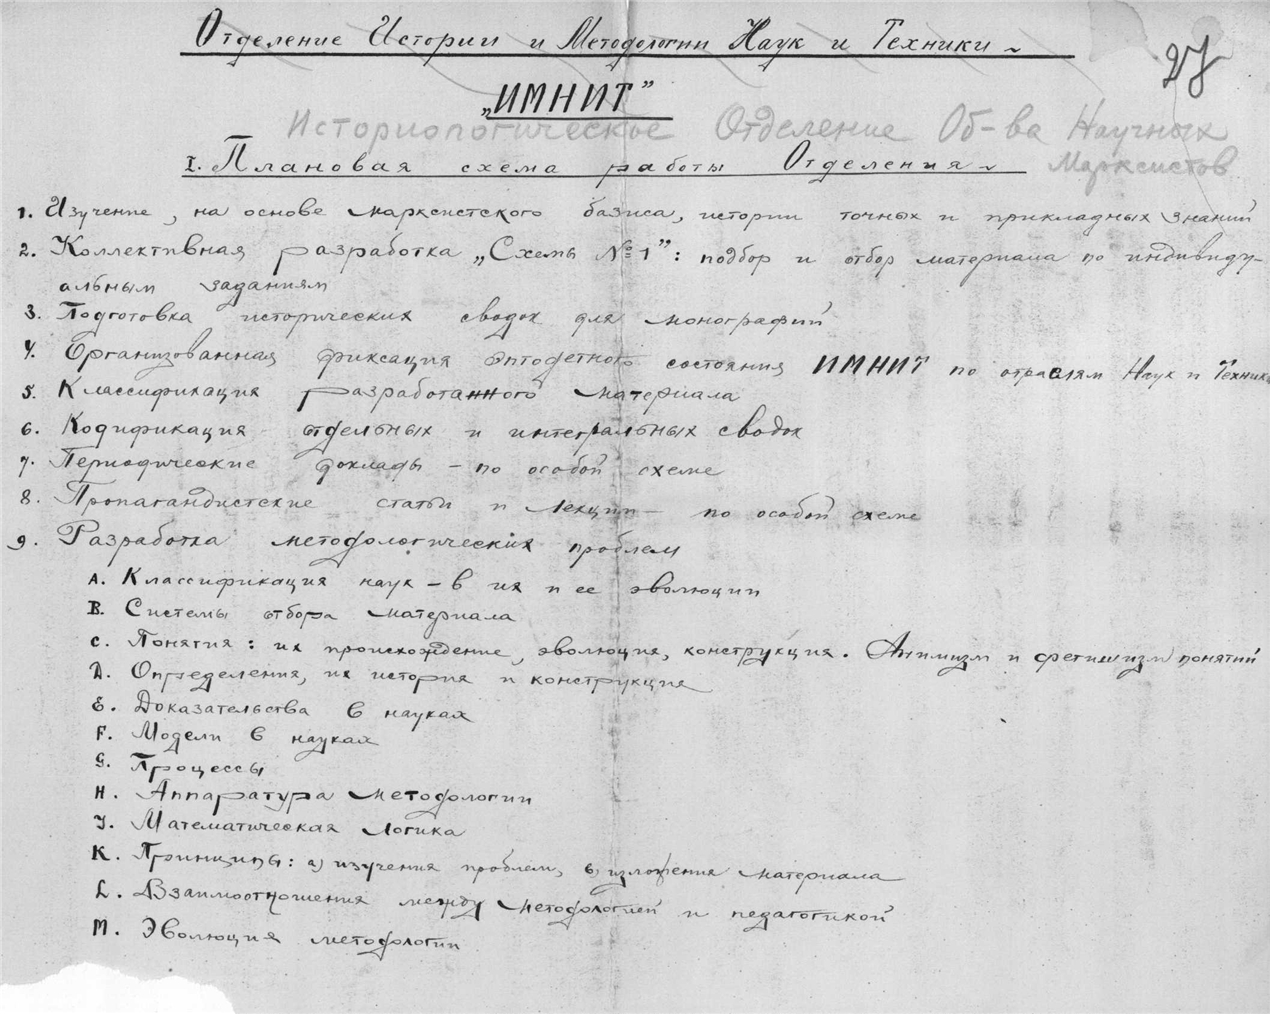 Отделение Истории и Методологии Наук и Техники ~
27
„ИМНИТ”
Историологическое Отделение Об-ва Научных
Марксистов
I. Плановая схема работы Отделения ~
1. Изучение, на основе марксистского базиса, истории точных и прикладных знаний
2. Коллективная разработка „Схемы №1”: подбор и отбор материала по индивиду-
альным заданиям
3. Подготовка исторических сводок для монографий
4. Организованная фиксация состояния ИМНИТ по отраслям Наук и Техники
5. Классификация разработанного материала
6. Кодификация отдельных и интегральных сводок
7. Периодические доклады – по особой схеме
8. Пропагандистские статьи и лекции – по особой схеме
9. Разработка методологических проблем
A. Классификация наук – в их и ее эволюции
B. Системы отбора материала
C. Понятия: их происхождение, эволюция, конструкция. Анимизм и фетишизм понятий
D. Определения, их история и конструкция
E. Доказательства в науках
F. Модели в науках
G. Процессы
H. Аппаратура методологии
J. Математическая логика
K. Принципы: а) изучения проблем, в) изложения материала
L. Взаимоотношения между методологией и педагогикой
M. Эволюция методологии